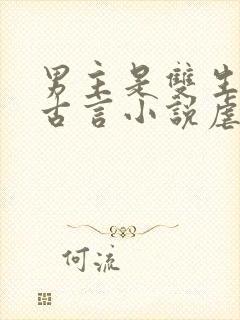 男主是雙生
古言小說虐
何流